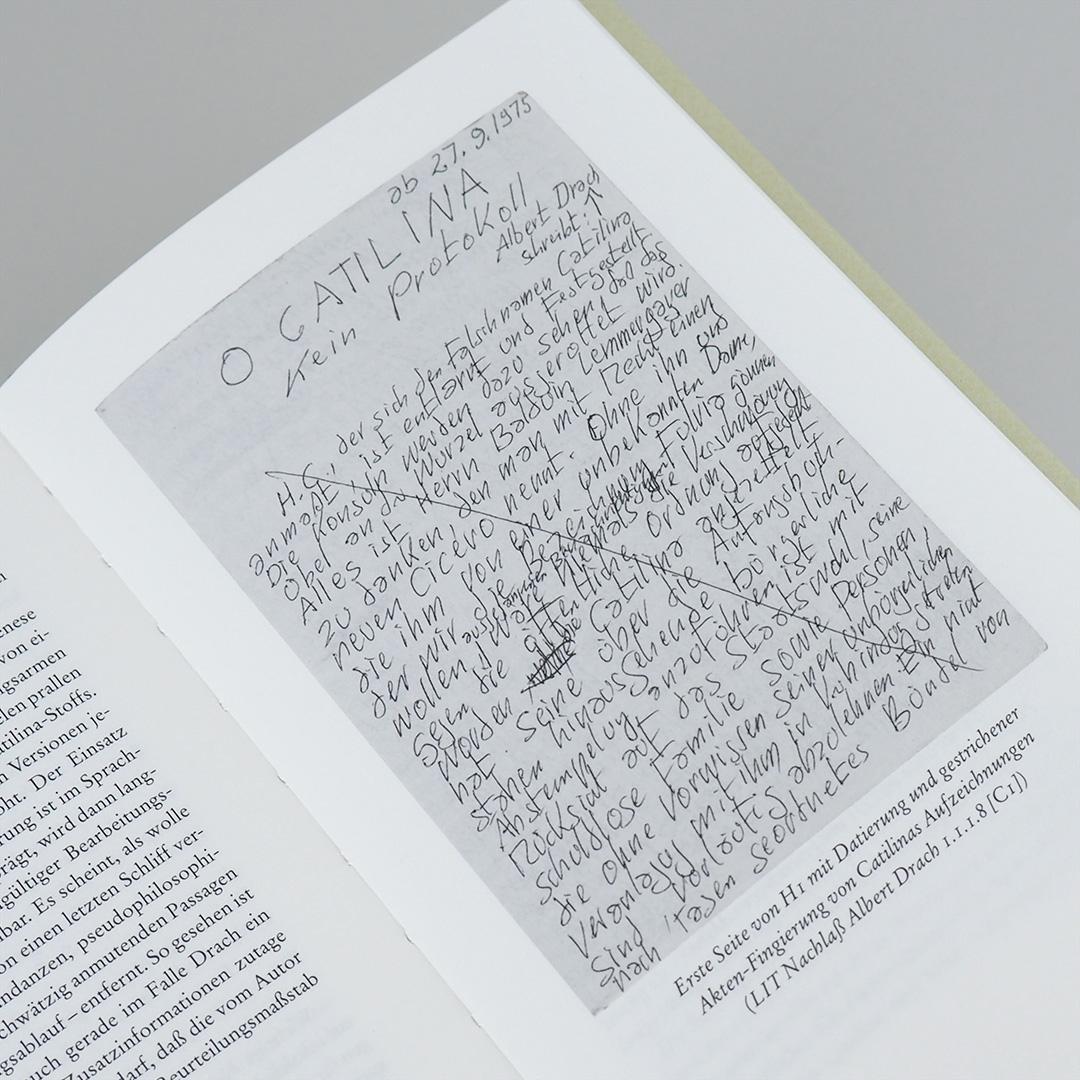 enese
von ei-
gsarmen
elen prallen
atilina-Stoffs.
n Versionen je-
oht. Der Einsatz
rung ist im Sprach-
rägt, wird dann lang-
gültiger Bearbeitungs-
bar. Es scheint, als wolle
on einen letzten Schliff ver-
ndanzen, pseudophilosophi-
chwätzig anmutenden Passagen
gsablauf – entfernt. So gesehen ist
uch gerade im Falle Drach ein
Zusatzinformationen zutage
darf, daß die vom Autor
eurteilungsmaßstab
ab 27.9.1975
O CATILINA
Kein Protokoll
Albert Drach
schreibt:
H.C., der sich den Falschnamen Catilina
anmaßt, ist entlarvt und festgestellt
Die Konsuln werden dazu sehen, daß das
Übel an der Wurzel ausgerottet wird
Alles ist Herrn Balbin Lemmergayer
zu danken, den man mit Recht einen
neuen Cicero nennt. Ohne ihn und
die ihm von einer unbekannten Dame,
der wir die Bezeichnung Fulvia gönnen
wollen, wäre die Verschwörung
gegen die Ordnung
worden. Catilina angezettelt
hat seine über die bürgerliche
stehen hinausgehende
Abstempelung anzuführen, ist mit
Rücksicht auf das Staatswohl, seine
schuldlose Familie sowie Personen,
die ohne Vorwissen seiner unbürgerlichen
Veranlagung mit ihm in Verbindung traten
sind vorläufig abzulehnen. Ein nicht
nach Tagen geordnetes Bündel von
Erste Seite von H1 mit Datierung und gestrichener
Akten-Fingierung von Catilinas Aufzeichnungen
(LIT Nachlaß Albert Drach 1.1.1.8 [C1])